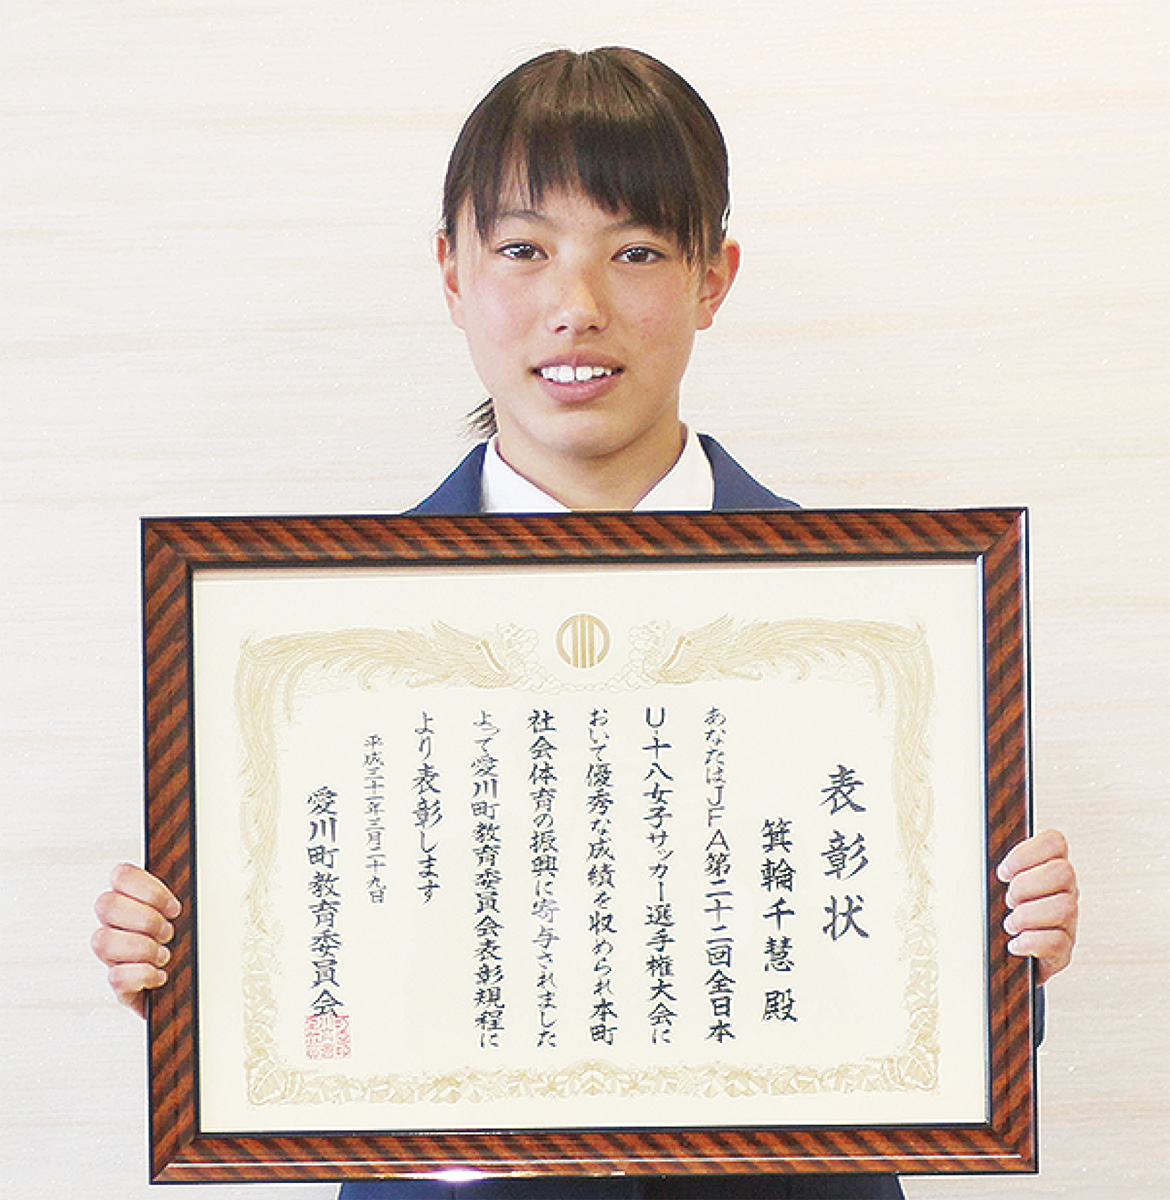 表彰状
箕輪千慧 殿
あなたはJFA第二十二回全日本
U-十八女子サッカー選手権大会に
おいて優秀な成績を収められ本町
社会体育の振興に寄与されました
よって愛川町教育委員会表彰規程に
より表彰します
平成三十一年三月二十九日
愛川町教育委員会